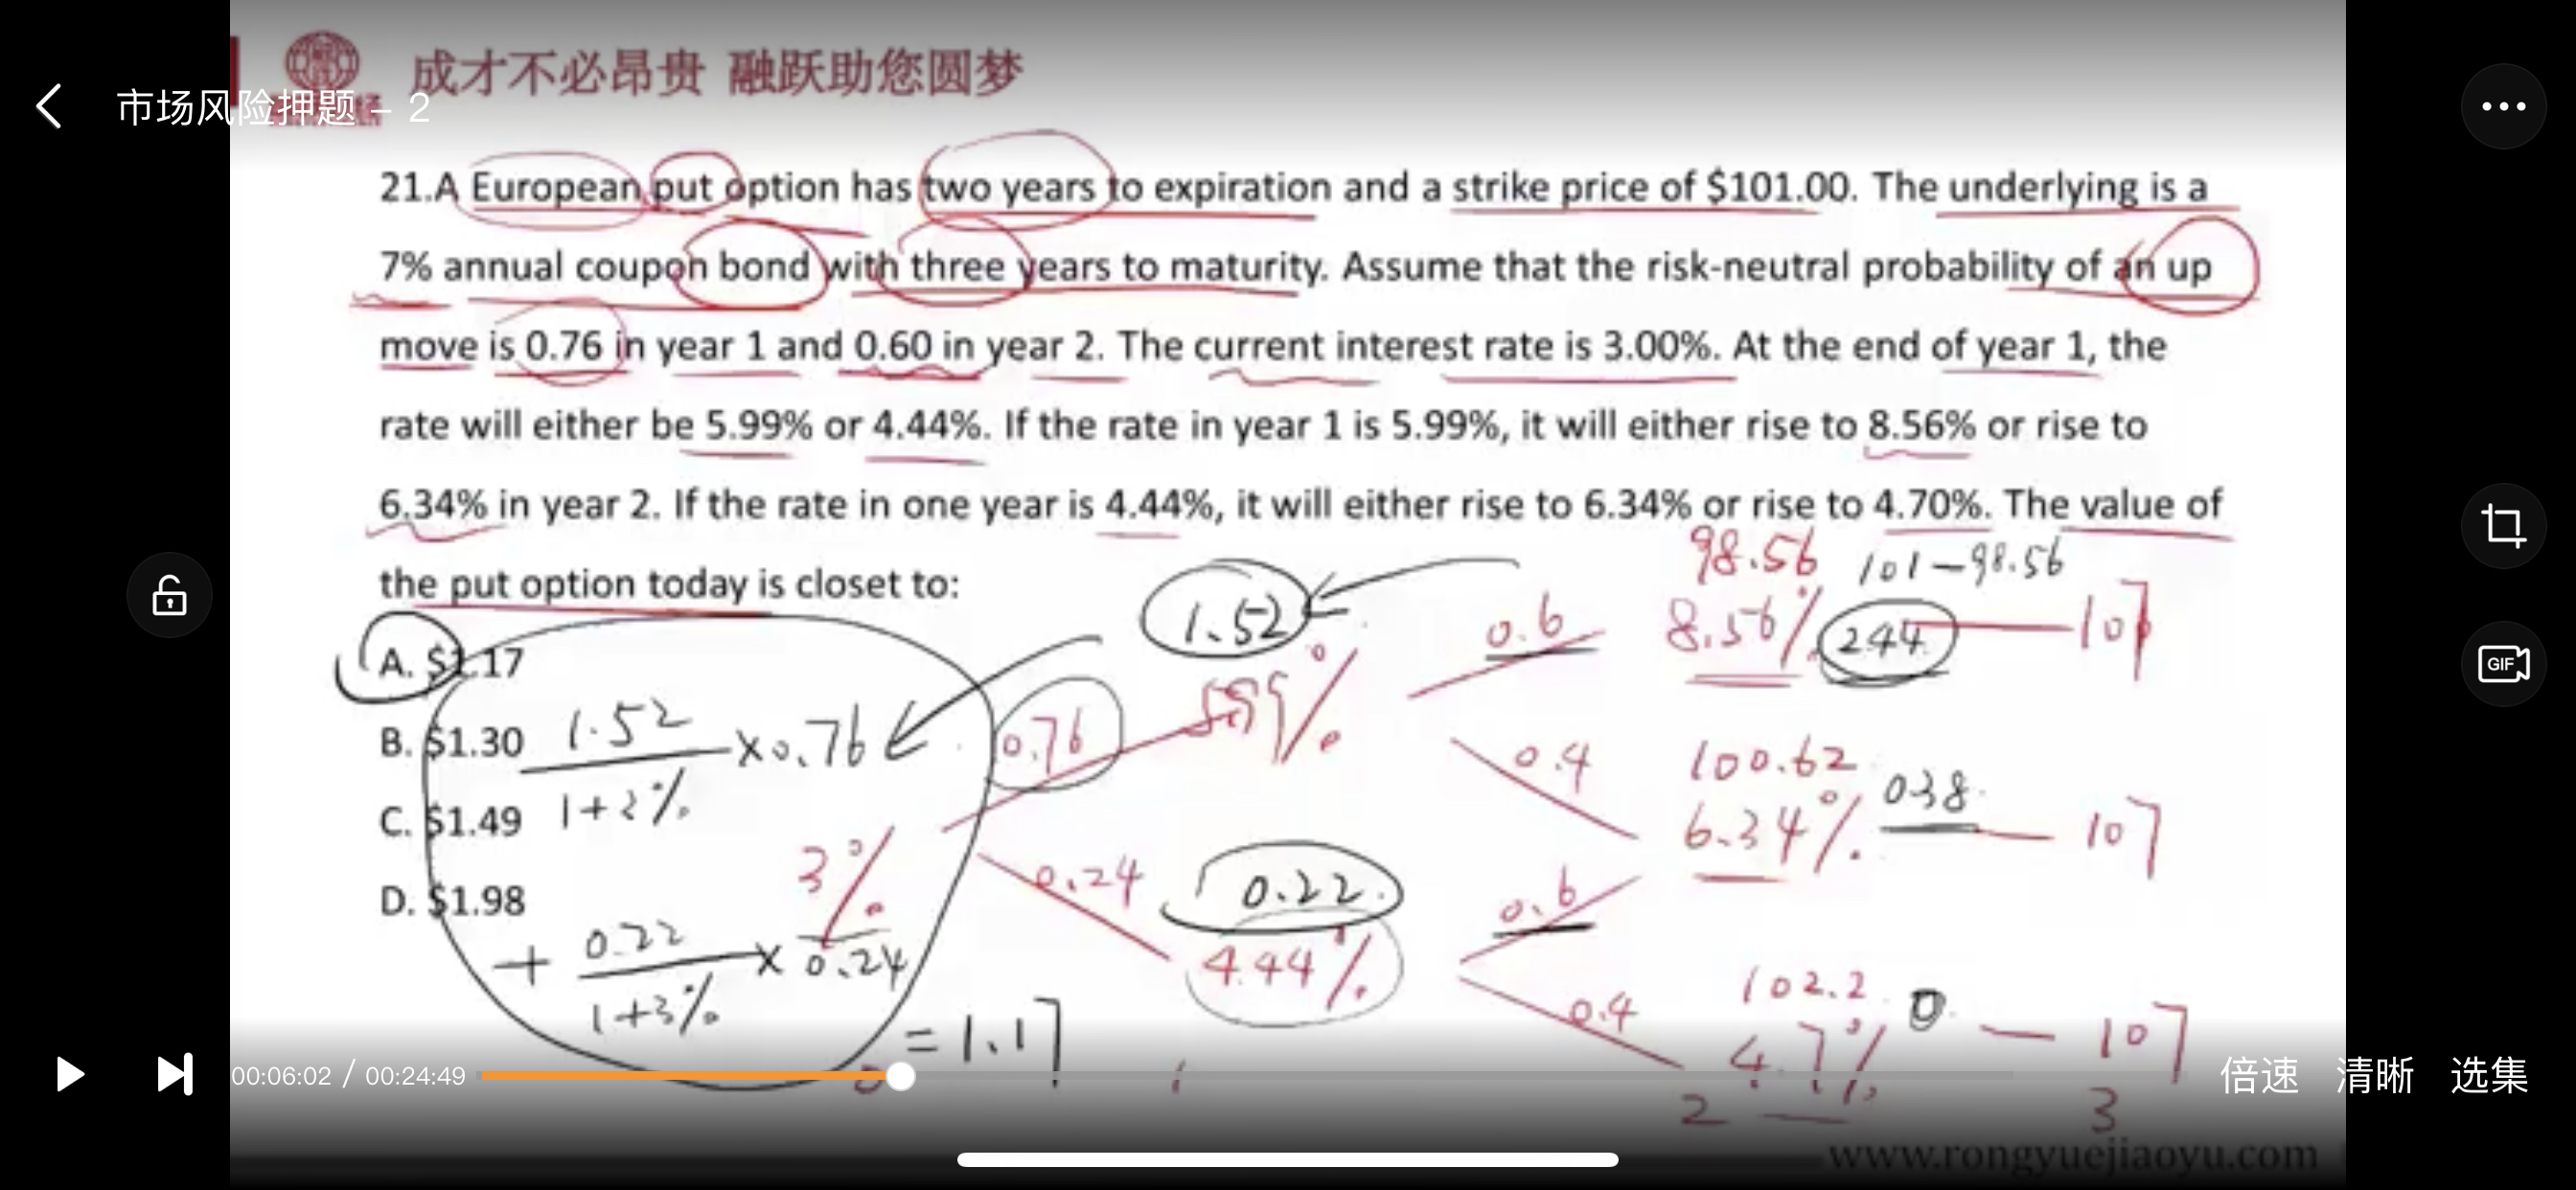 成才不必昂贵 融跃助您圆梦
市场风险押题 – 2
21.A European put option has two years to expiration and a strike price of $101.00. The underlying is a
7% annual coupon bond with three years to maturity. Assume that the risk-neutral probability of an up
move is 0.76 in year 1 and 0.60 in year 2. The current interest rate is 3.00%. At the end of year 1, the
rate will either be 5.99% or 4.44%. If the rate in year 1 is 5.99%, it will either rise to 8.56% or rise to
6.34% in year 2. If the rate in one year is 4.44%, it will either rise to 6.34% or rise to 4.70%. The value of
the put option today is closet to:
98.56 101-98.56
1.52 0.6 8.56% 2.44 107
A. $1.17
5.99%
B. $1.30 1.52 ×0.76 0.76
0.4 100.62 038
C. $1.49 1+3% 6.34% 107
3% 0.24 0.22 0.6
D. $1.98
+ 0.22 × 0.24 4.44%
1+3% 0.4 102.2 0 107
= 1.17 4.7%
00:06:02 / 00:24:49 倍速 清晰 选集
0 1 2 3
www.rongyuejiaoyu.com
GIF